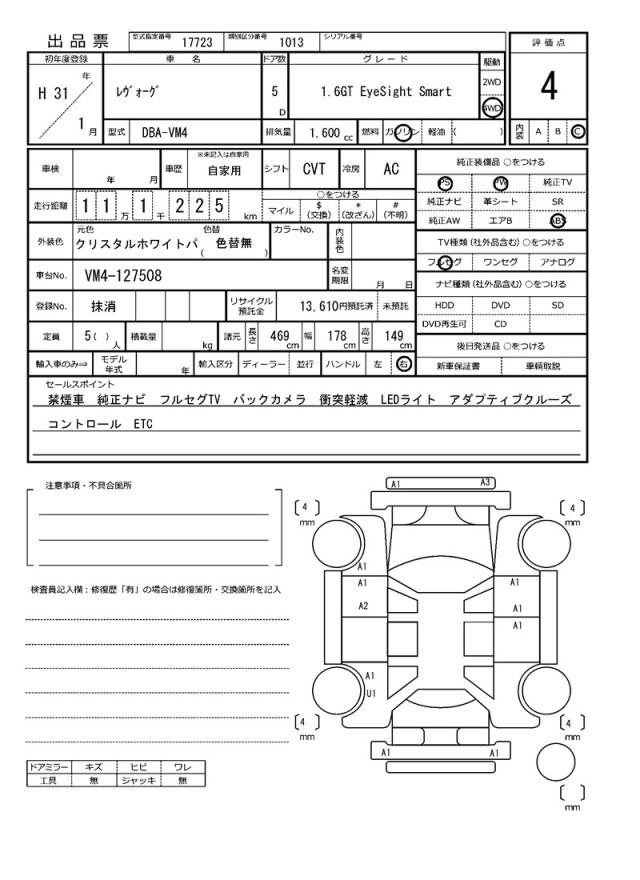 出品票 型式指定番号 17723 類別区分番号 1013 シリアル番号
評価点
初年度登録 車名 ドア数 グレード 駆動
H 31 年 レヴォーグ 5 D 1.6GT EyeSight Smart 2WD 4WD
4
1 月 型式 DBA-VM4 排気量 1.600 cc 燃料 ガソリン 軽油 ( ) 内装 A B C
車検 年 月 車歴 ※未記入は自家用 自家用 シフト CVT 冷房 AC
純正装備品 ○をつける
PS PW 純正TV
走行距離 1 1 万 1 千 2 2 5 km ○をつける
マイル $ (交換) * (改ざん) # (不明)
純正ナビ 革シート SR
純正AW エアB ABS
外装色 元色 クリスタルホワイトパ 色替 ( 色替無 ) カラーNo. 内装色
TV種類 (社外品含む) ○をつける
フルセグ ワンセグ アナログ
車台No. VM4-127508 名変期限 月 日
ナビ種類 (社外品含む) ○をつける
登録No. 抹消 リサイクル預託金 13,610円預託済 未預託
HDD DVD SD
DVD再生可 CD
定員 5( ) 人 積載量 kg 諸元 長さ 469 cm 幅 178 cm 高さ 149 cm
後日発送品 ○をつける
輸入車のみ⇒ モデル年式 年 輸入区分 ディーラー 並行 ハンドル 左 右
新車保証書 車輌取説
セールスポイント
禁煙車 純正ナビ フルセグTV バックカメラ 衝突軽減 LEDライト アダプティブクルーズ
コントロール ETC
注意事項・不具合箇所
検査員記入欄：修復歴「有」の場合は修復箇所・交換箇所を記入
ドアミラー キズ ヒビ ワレ
工具 無 ジャッキ 無
A1 A3
4 mm
4 mm
A1
A1 A1
A2 A1
A1
A1
U1
4 mm
4 mm
A1 A1
mm